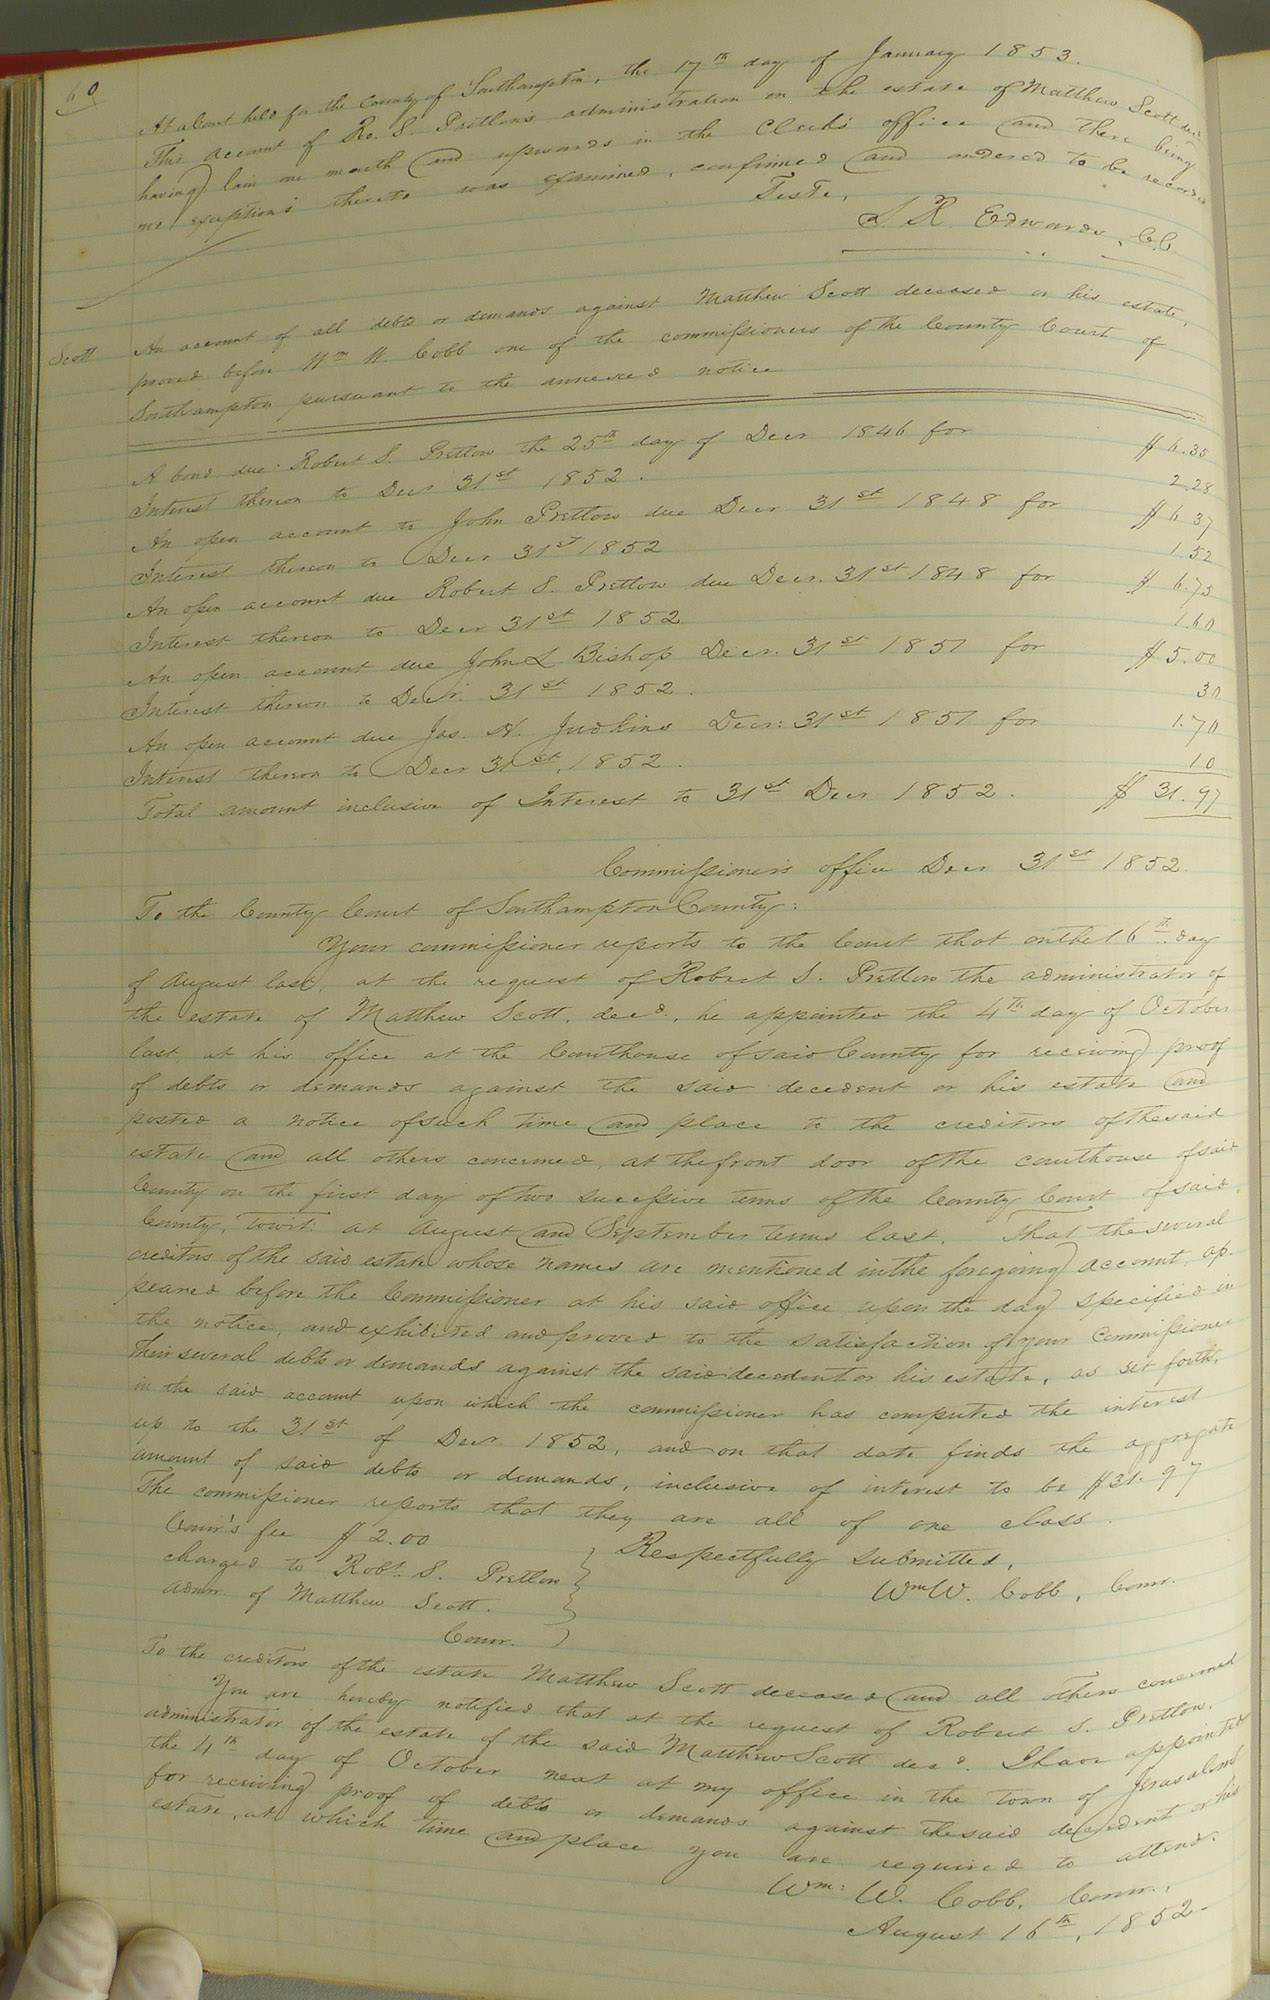 60
At a Court held for the County of Southampton, the 17th day of January 1853.
This account of Ro. S. Pretlow's administration on the estate of Matthew Scott decd
having lain one month and upwards in the Clerk's office and there being
no exceptions thereto was examined, confirmed and ordered to be recorded
Teste,
L. R. Edwards, C.C.
Scott
An account of all debts or demands against Matthew Scott deceased or his estate,
proved before Wm W. Cobb one of the commissioners of the County Court of
Southampton pursuant to the annexed notice
A bond due Robert S. Pretlow the 25th day of Decr 1846 for $6.35
Interest thereon to Decr 31st 1852. 2.28
An open account to John Pretlow due Decr 31st 1848 for $6.37
Interest thereon to Decr 31st 1852 1.52
An open account due Robert S. Pretlow due Decr. 31st 1848 for $6.75
Interest thereon to Decr 31st 1852 1.60
An open account due John L Bishop Decr. 31st 1851 for $5.00
Interest thereon to Decr. 31st 1852. 30
An open account due Jas. H. Judkins Decr: 31st 1851 for 1.70
Interest thereon to Decr 31st, 1852. 10
Total amount inclusive of Interest to 31st Decr 1852. $31.97
Commissioner's office Decr 31st 1852.
To the County Court of Southampton County:
Your commissioner reports to the Court that on the 16th day
of August last, at the request of Robert S. Pretlow the administrator of
the estate of Matthew Scott, decd., he appointed the 4th day of October
last, at his office at the Courthouse of said County for receiving proof
of debts or demands against the said decedent or his estate and
posted a notice of such time and place to the creditors of the said
estate and all others concerned, at the front door of the courthouse of said
County on the first day of two successive terms of the County Court of said
County, Towit: at August and September terms last. That the several
creditors of the said estate whose names are mentioned in the foregoing account, ap-
peared before the Commissioner at his said office upon the day specified in
the notice, and exhibited and proved to the satisfaction of your Commissioner
their several debts or demands against the said decedent or his estate, as set forth,
in the said account upon which the commissioner has computed the interest
up to the 31st of Decr. 1852, and on that date finds the aggregate
amount of said debts or demands, inclusive of interest to be $31.97
The commissioner reports that they are all of one class.
Comr's fee $2.00
charged to Robt. S. Pretlow
admr. of Matthew Scott.
Comr.
Respectfully submitted,
Wm W. Cobb, Comr.
To the creditors of the estate Matthew Scott deceased and all others concerned
You are hereby notified that at the request of Robert S. Pretlow,
administrator of the estate of the said Matthew Scott decd. I have appointed
the 4th day of October next at my office in the town of Jerusalem
for receiving proof of debts or demands against the said decedent or his
estate, at which time and place you are required to attend.
Wm: W. Cobb, Comr.,
August 16th, 1852.